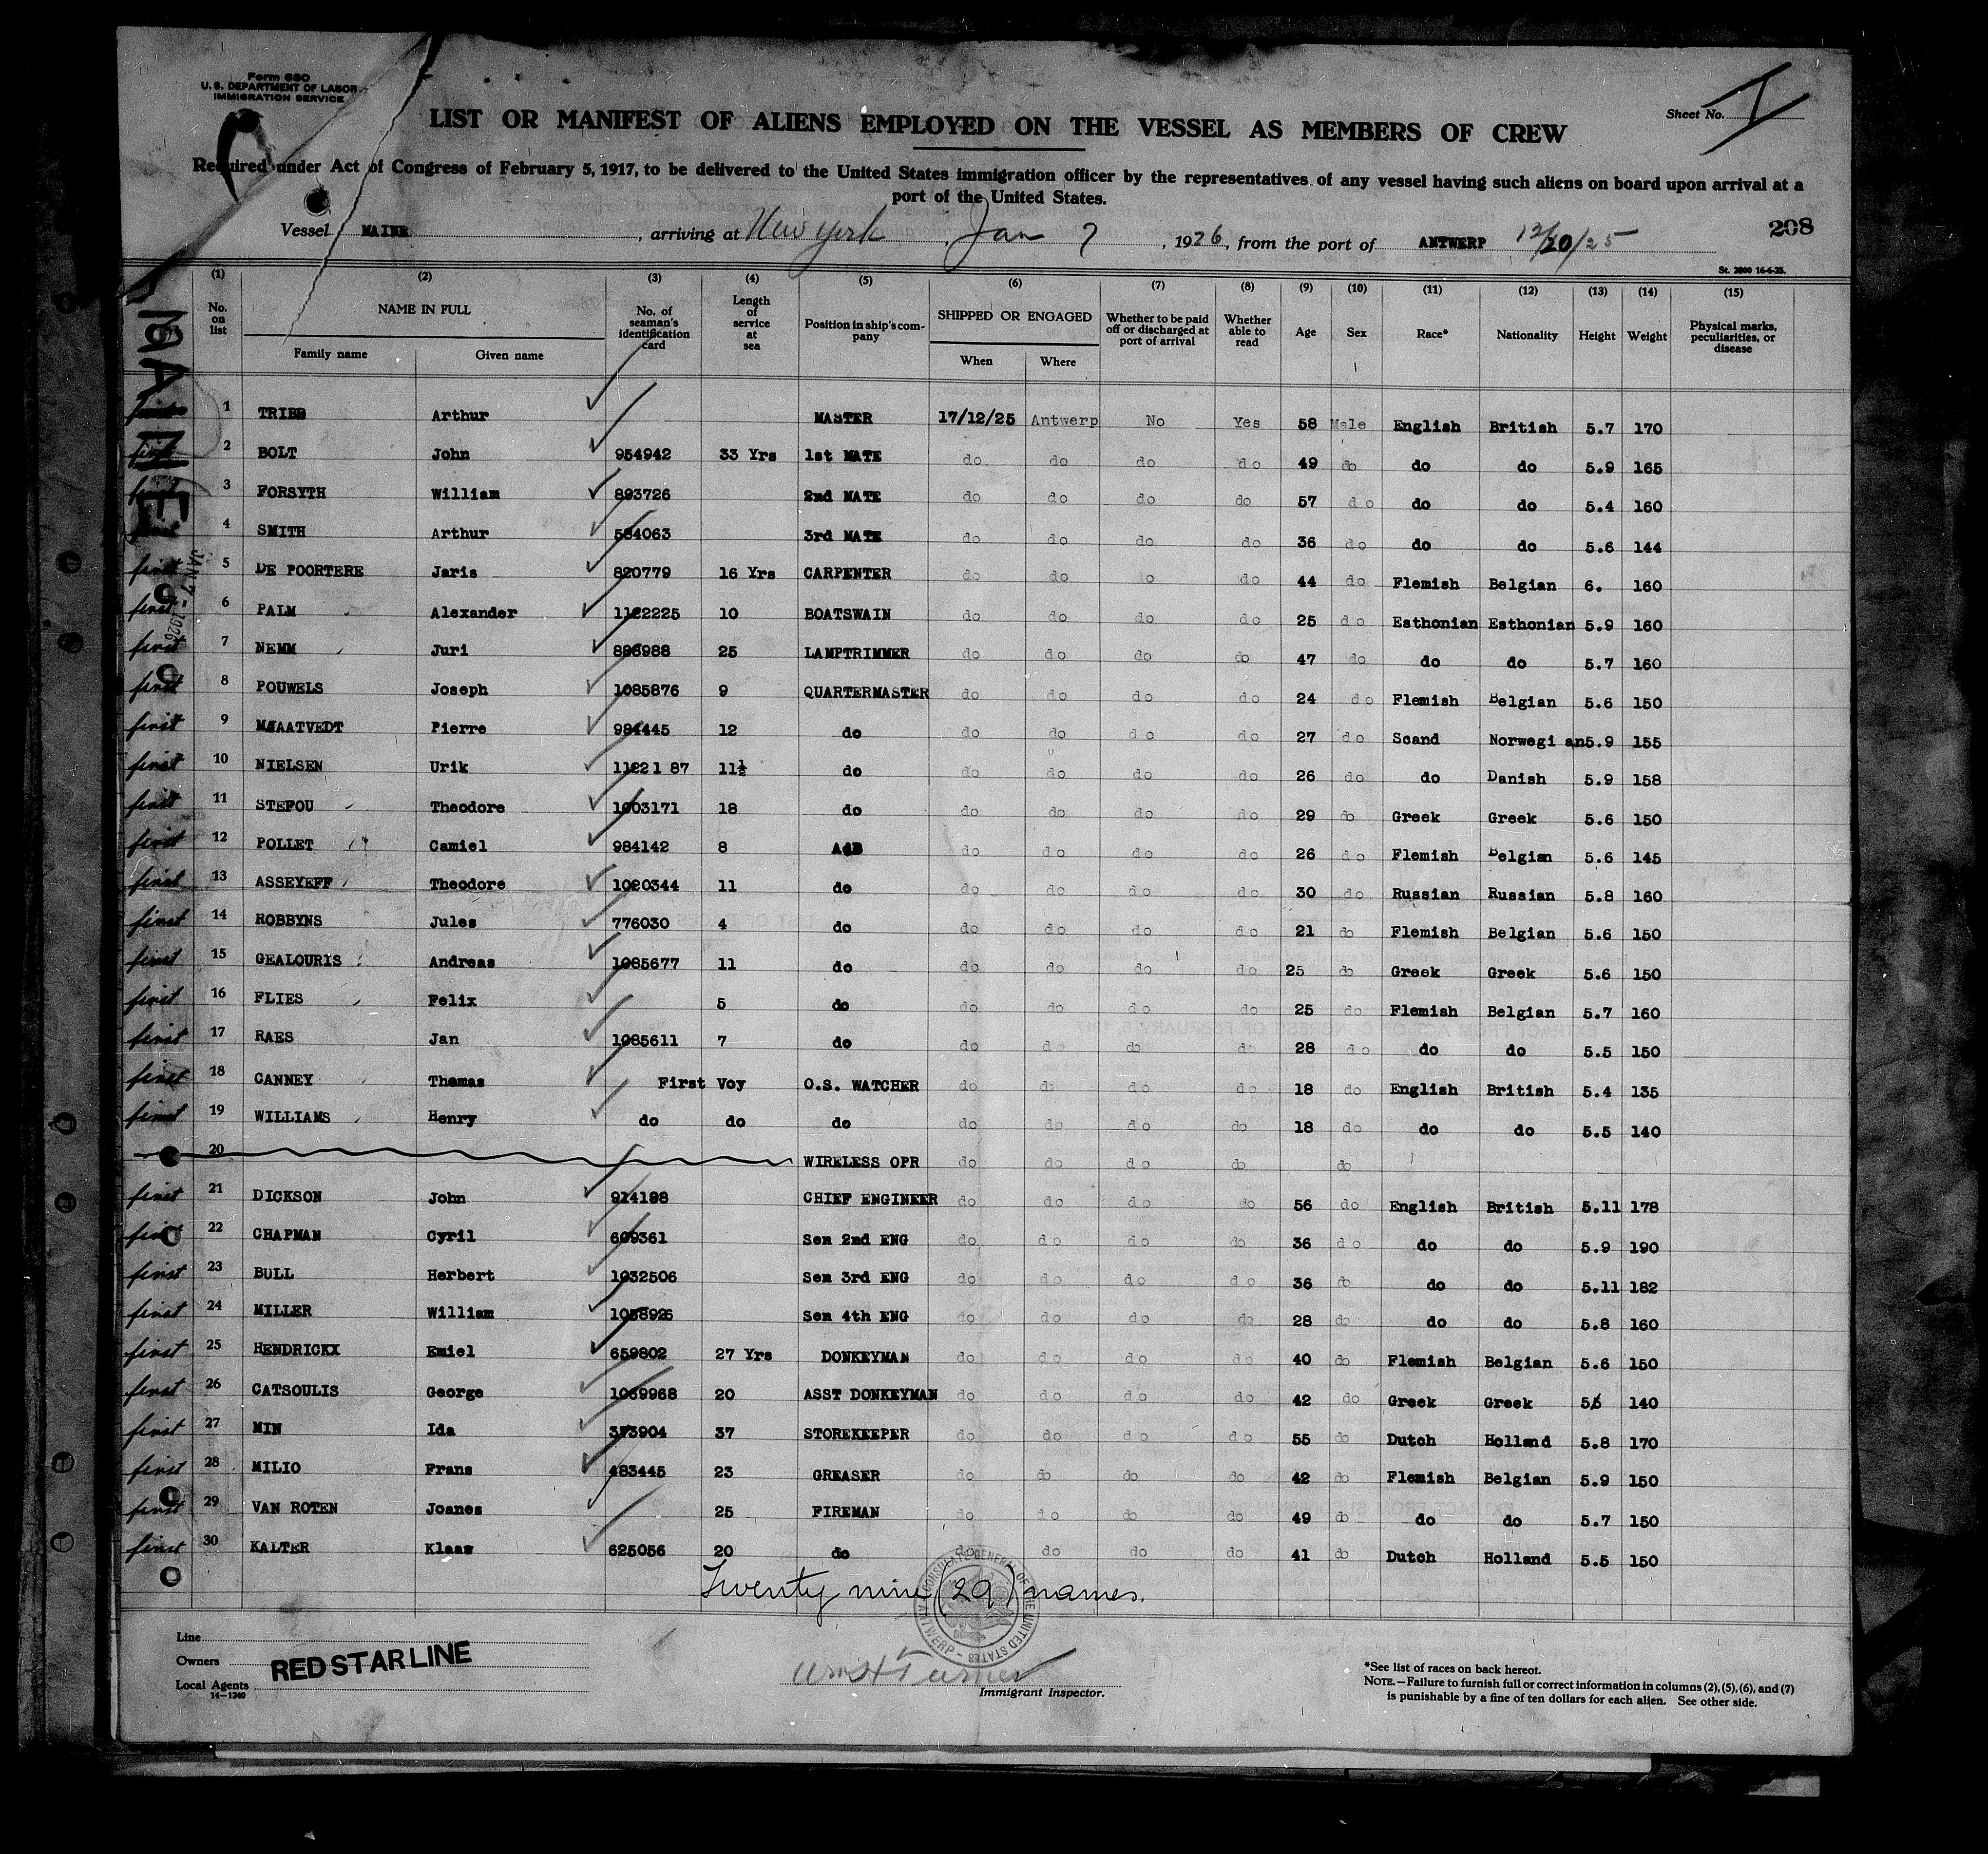 Form 680
U. S. DEPARTMENT OF LABOR
IMMIGRATION SERVICE
Sheet No. I
LIST OR MANIFEST OF ALIENS EMPLOYED ON THE VESSEL AS MEMBERS OF CREW
Required under Act of Congress of February 5, 1917, to be delivered to the United States immigration officer by the representatives of any vessel having such aliens on board upon arrival at a
port of the United States.
208
Vessel MAINE, arriving at New York, Jan 7, 1926, from the port of ANTWERP 12/20/25
St. 2800 16-6-25.
MAINE
JAN 7 - 1926
(1) (2) (3) (4) (5) (6) (7) (8) (9) (10) (11) (12) (13) (14) (15)
No. on list NAME IN FULL No. of seaman's identification card Length of service at sea Position in ship's company SHIPPED OR ENGAGED Whether to be paid off or discharged at port of arrival Whether able to read Age Sex Race* Nationality Height Weight Physical marks, peculiarities, or disease
Family name Given name When Where
1 TRIBB Arthur MASTER 17/12/25 Antwerp No Yes 58 Male English British 5.7 170
first 2 BOLT John 954942 33 Yrs 1st MATE do do do do 49 do do do 5.9 165
3 FORSYTH William 893726 2nd MATE do do do do 57 do do do 5.4 160
4 SMITH Arthur 584063 3rd MATE do do do do 36 do do do 5.6 144
first 5 DE POORTERE Jaris 820779 16 Yrs CARPENTER do do do do 44 do Flemish Belgian 6. 160
first 6 PALM Alexander 1122225 10 BOATSWAIN do do do do 25 do Esthonian Esthonian 5.9 160
first 7 NEMM Juri 886988 25 LAMPTRIMMER do do do do 47 do do do 5.7 160
first 8 POUWELS Joseph 1085876 9 QUARTERMASTER do do do do 24 do Flemish Belgian 5.6 150
first 9 MJAATVEDT Pierre 984445 12 do do do do do 27 do Scand Norwegi an 5.9 155
first 10 NIELSEN Urik 11221 87 11½ do do do do do 26 do do Danish 5.9 158
first 11 STEFOU Theodore 1003171 18 do do do do do 29 do Greek Greek 5.6 150
first 12 POLLET Camiel 984142 8 do do do do 26 do Flemish Belgian 5.6 145
first 13 ASSEYEFF Theodore 1020344 11 do do do do do 30 do Russian Russian 5.8 160
first 14 ROBBYNS Jules 776030 4 do do do do do 21 do Flemish Belgian 5.6 150
first 15 GEALOURIS Andreas 1085677 11 do do do do do 25 do Greek Greek 5.6 150
first 16 FLIES Felix 5 do do do do do 25 do Flemish Belgian 5.7 160
first 17 RAES Jan 1085611 7 do do do do do 28 do do do 5.5 150
first 18 CANNEY Thomas First Voy O.S. WATCHER do do do do 18 do English British 5.4 135
first 19 WILLIAMS Henry do do do do do do do 18 do do do 5.5 140
20 WIRELESS OPR do do do do do
first 21 DICKSON John 914188 CHIEF ENGINEER do do do do 56 do English British 5.11 178
first 22 CHAPMAN Cyril 609361 Sen 2nd ENG do do do do 36 do do do 5.9 190
first 23 BULL Herbert 1032506 Sen 3rd ENG do do do do 36 do do do 5.11 182
first 24 MILLER William 1058926 Sen 4th ENG do do do do 28 do do do 5.8 160
first 25 HENDRICKX Emiel 659802 27 Yrs DONKEYMAN do do do do 40 do Flemish Belgian 5.6 150
first 26 CATSOULIS George 1069968 20 ASST DONKEYMAN do do do do 42 do Greek Greek 56 140
first 27 MIN Ida 373904 37 STOREKEEPER do do do do 55 do Dutch Holland 5.8 170
first 28 MILIO Frans 483445 23 GREASER do do do do 42 do Flemish Belgian 5.9 150
first 29 VAN ROTEN Joanes 25 FIREMAN do do do do 49 do do do 5.7 150
first 30 KALTER Klaas 625056 20 do do do do do 41 do Dutch Holland 5.5 150
Twenty nine (29) names.
AMERICAN CONSULATE GENERAL OF THE UNITED STATES ANTWERP
Line
Owners RED STAR LINE
Local Agents
14-1240
Wm H Turner
Immigrant Inspector.
*See list of races on back hereof.
NOTE.—Failure to furnish full or correct information in columns (2), (5), (6), and (7)
is punishable by a fine of ten dollars for each alien. See other side.